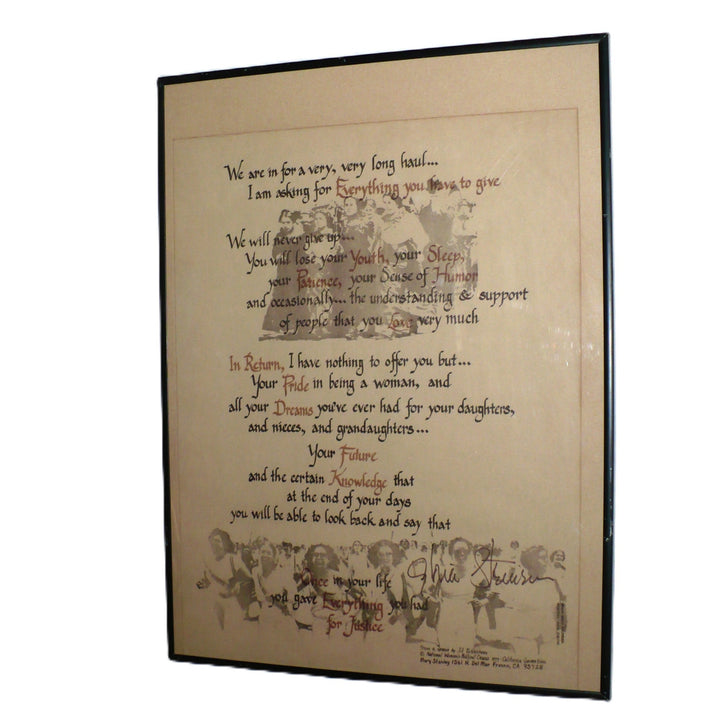 We are in for a very, very long haul...
I am asking for Everything you have to give
We will never give up...
You will lose your Youth, your Sleep,
your Patience, your Sense of Humor
and occasionally... the understanding & support
of people that you Love very much
In Return, I have nothing to offer you but...
Your Pride in being a woman, and
all your Dreams you've ever had for your daughters,
and nieces, and grandaughters...
Your Future
and the certain Knowledge that
at the end of your days
you will be able to look back and say that
Once in your life
you gave Everything you had
for Justice
From a speech by
© National Women's Political Caucus 1979 California Convention
Mary Stanley 1061 N. Del Mar Fresno, CA 93728